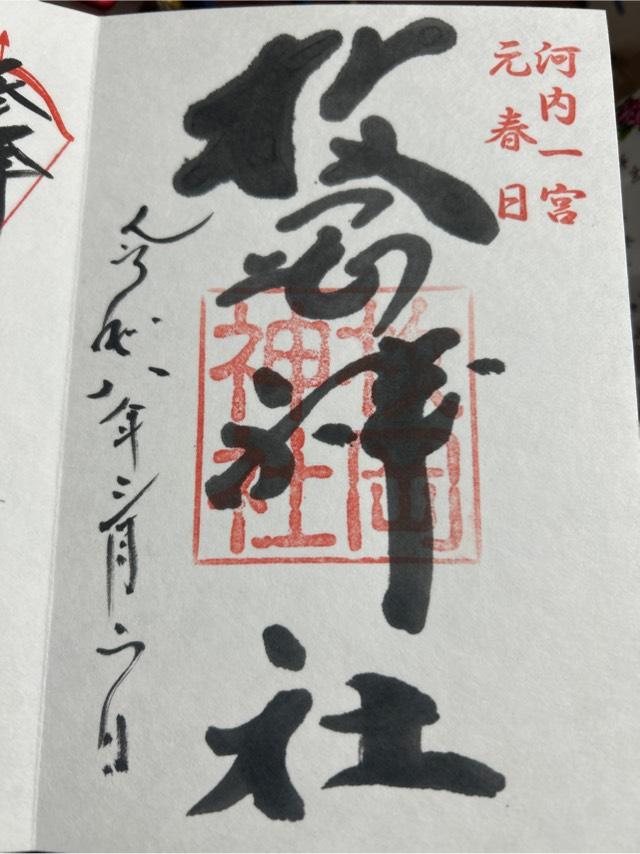 河内一宮
元春日
枚岡神社
枚岡
神社
令和八年三月六日